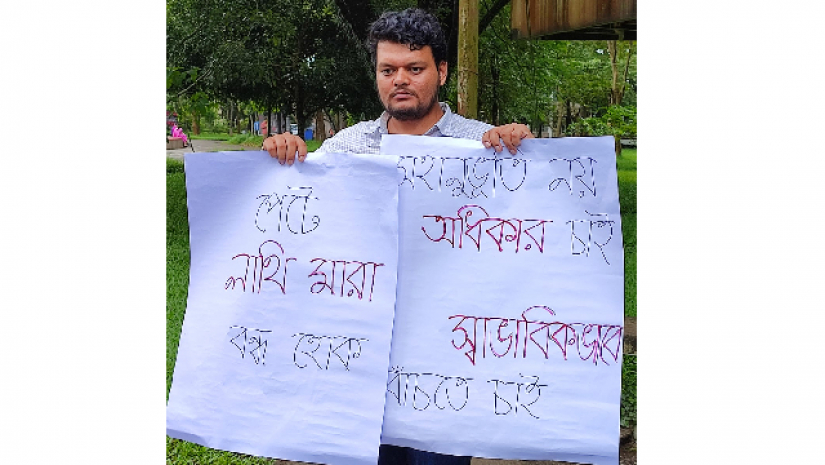 পেটে
লাথি মারা
বন্ধ হোক
সহানুভূতি নয়
অধিকার চাই
স্বাভাবিকভাবে
বাঁচতে চাই